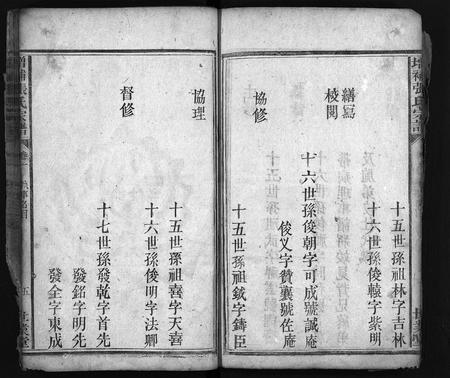 增補張氏宗譜
繕寫
校閱
十五世孫祖林字吉林
十六世孫俊轅字紫明
十六世孫俊朝字可成號誠庵
俊乂字贊襄號佐庵
協修
十五世孫祖鉞字鑄臣
協理
十五世孫祖喜字天喜
十六世孫俊明字法卿
督修
十七世孫發乾字首先
發銘字明先
發全字東成
增補張氏宗譜
卷一
五